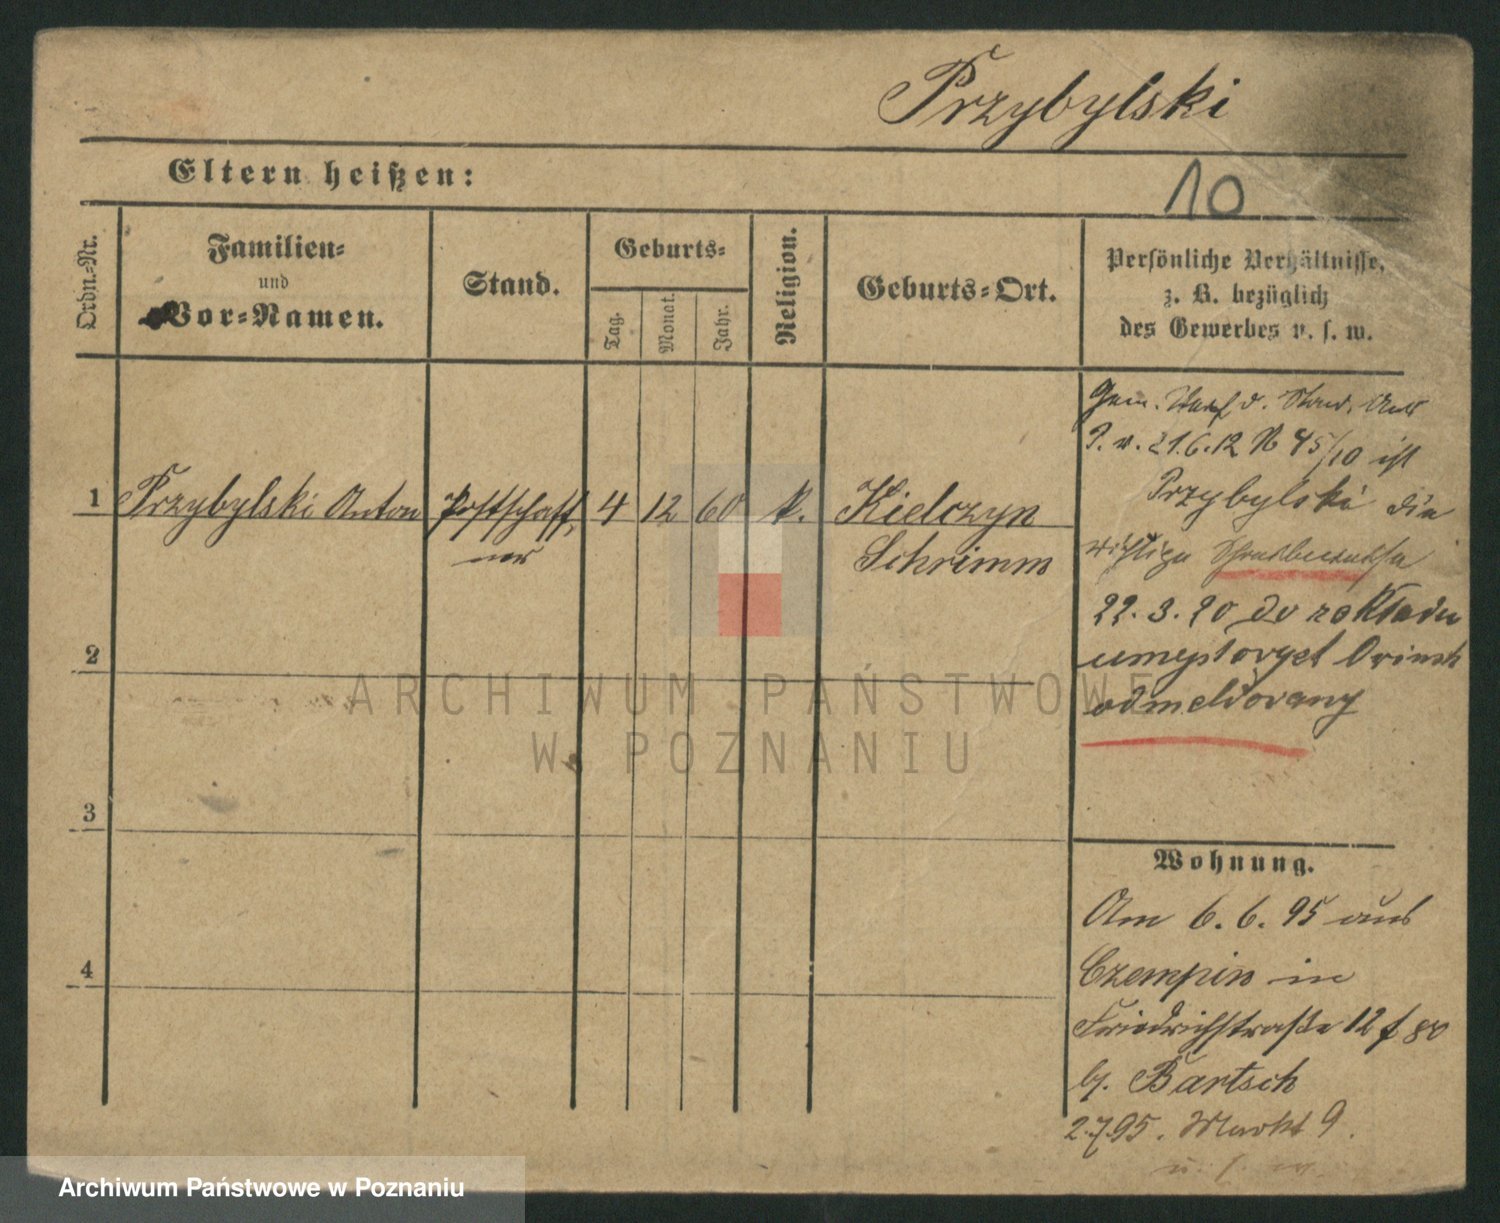 Przybylski
Eltern heißen:
10
Ordn.-Nr.
Familien-
und
Vor-Namen.
Stand.
Geburts-
Tag.
Monat.
Jahr.
Religion.
Geburts-Ort.
Persönliche Verhältnisse,
z. B. bezüglich
des Gewerbes u. s. w.
1 Przybylski Anton Postschaff- 4 12 60 k. Kielczyn
ner
Schrimm
2
3
4
Gem. d. Stand. Amt
P. v. 21.6.12 N 45/10 ist
Przybylski die
richtige
22.3.20 do zakładu
odmeldowany
Wohnung.
Am 6.6.95 aus
Czempin in
Friedrichstraße 12
b. Bartsch
2.7.95. Markt 9.
u. s. w.
ARCHIWUM PAŃSTWOWE
W POZNANIU
Archiwum Państwowe w Poznaniu